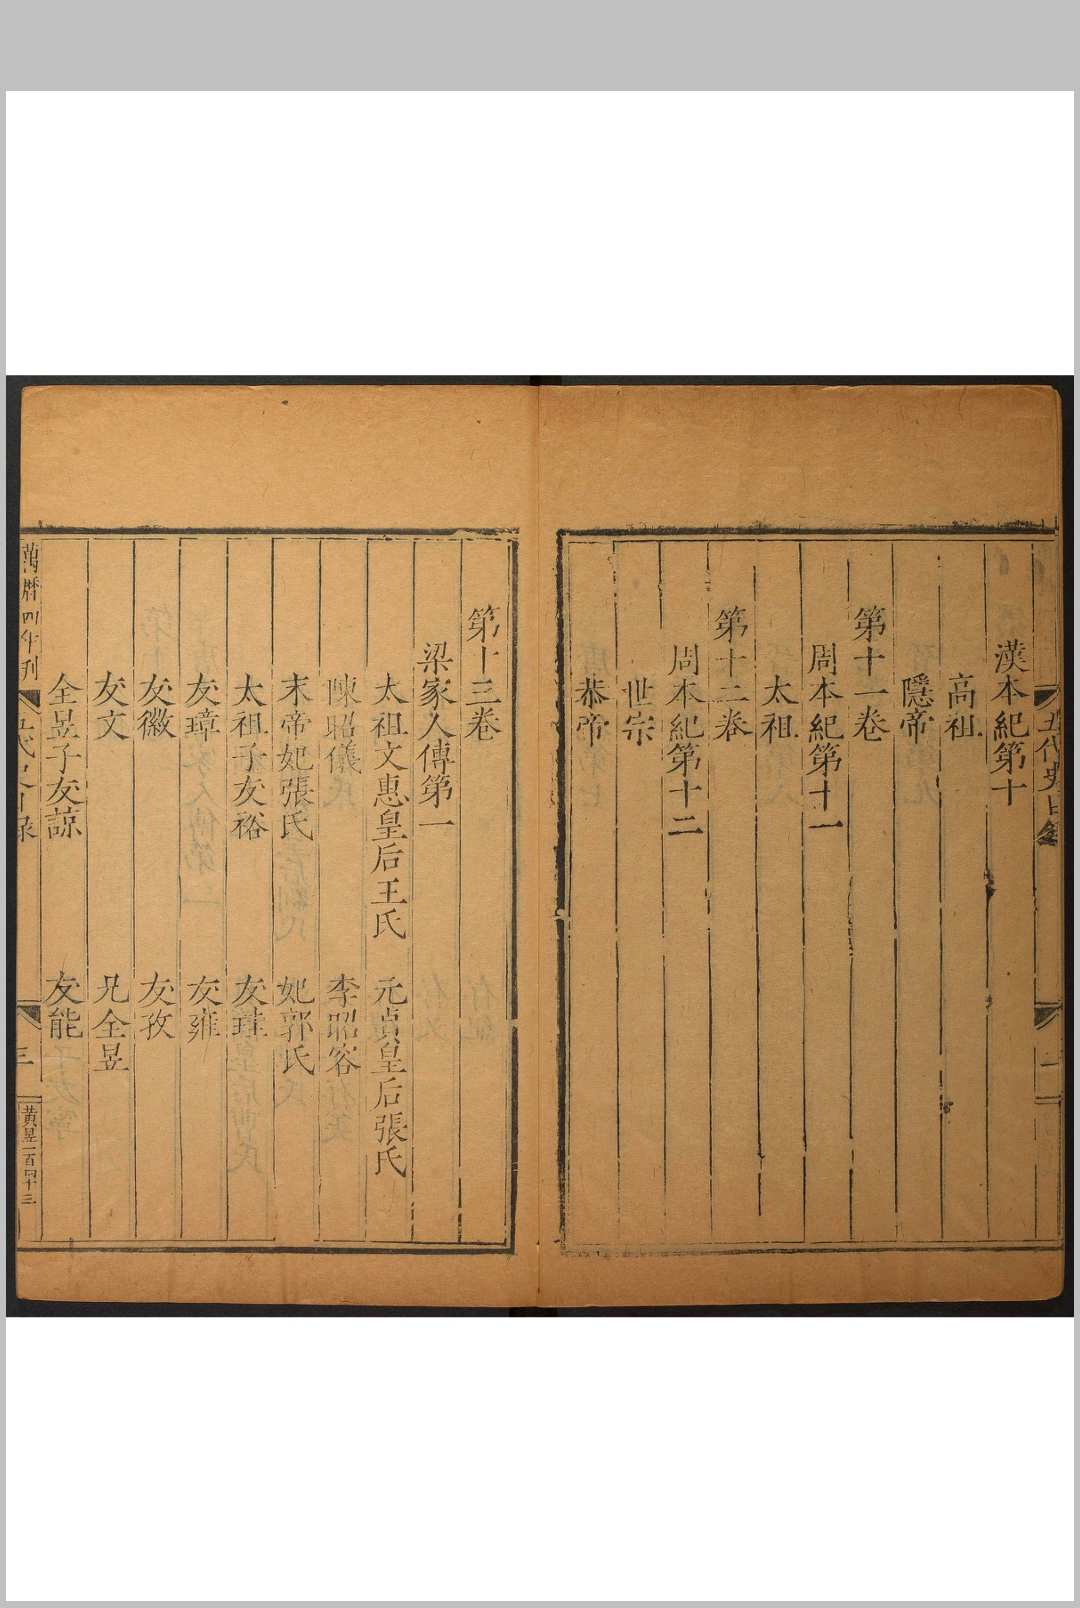 五代史目錄
漢本紀第十
高祖
隱帝
第十一卷
周本紀第十一
太祖
第十二卷
周本紀第十二
世宗
恭帝
第十三卷
梁家人傳第一
太祖文惠皇后王氏 元貞皇后張氏
陳昭儀 李昭容
末帝妃張氏 妃郭氏
太祖子友裕 友珪
友璋 友雍
友徽 友孜
友文 兄全昱
全昱子友諒 友能
萬曆四年刊
三